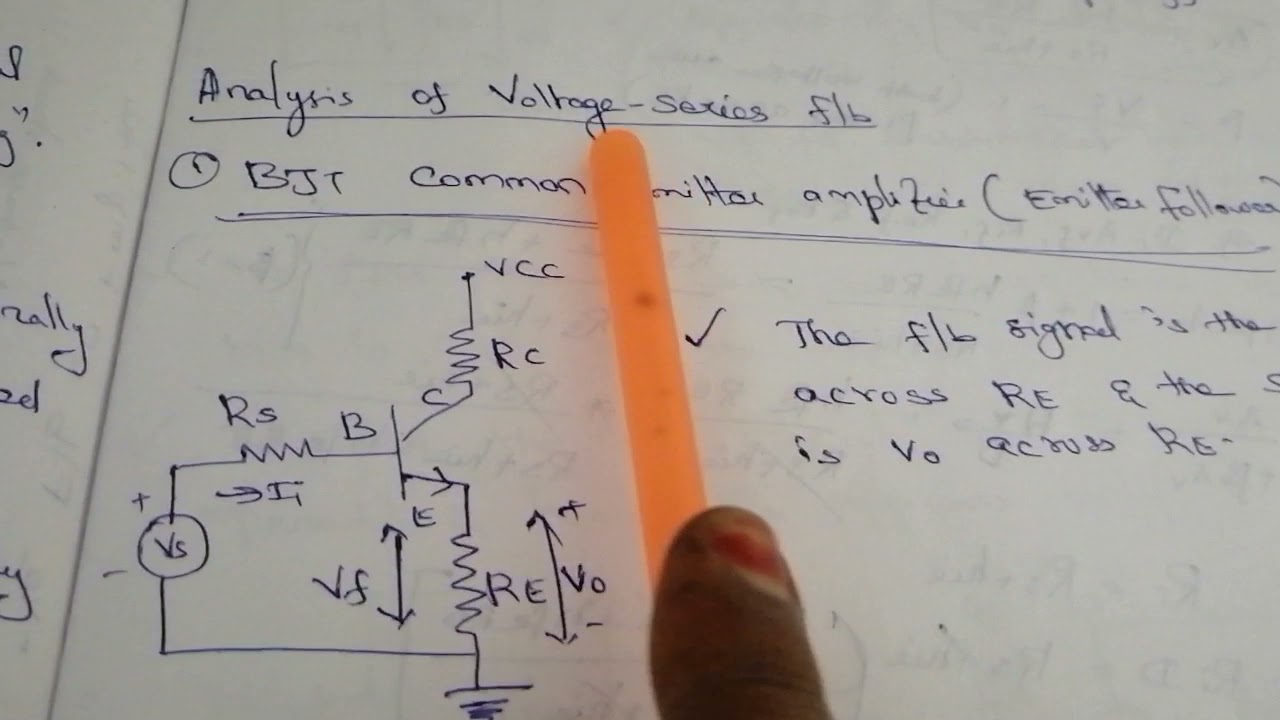 Analysis of Voltage-series f/b
① BJT Common mitter amplifier (Emitter follower)
VCC
RC
C
Rs
B
→ Ii
+
Vs
-
E
Vf
RE
+
Vo
-
✓ The f/b signal is the
across RE & the s
is Vo across RE.
rally
zed